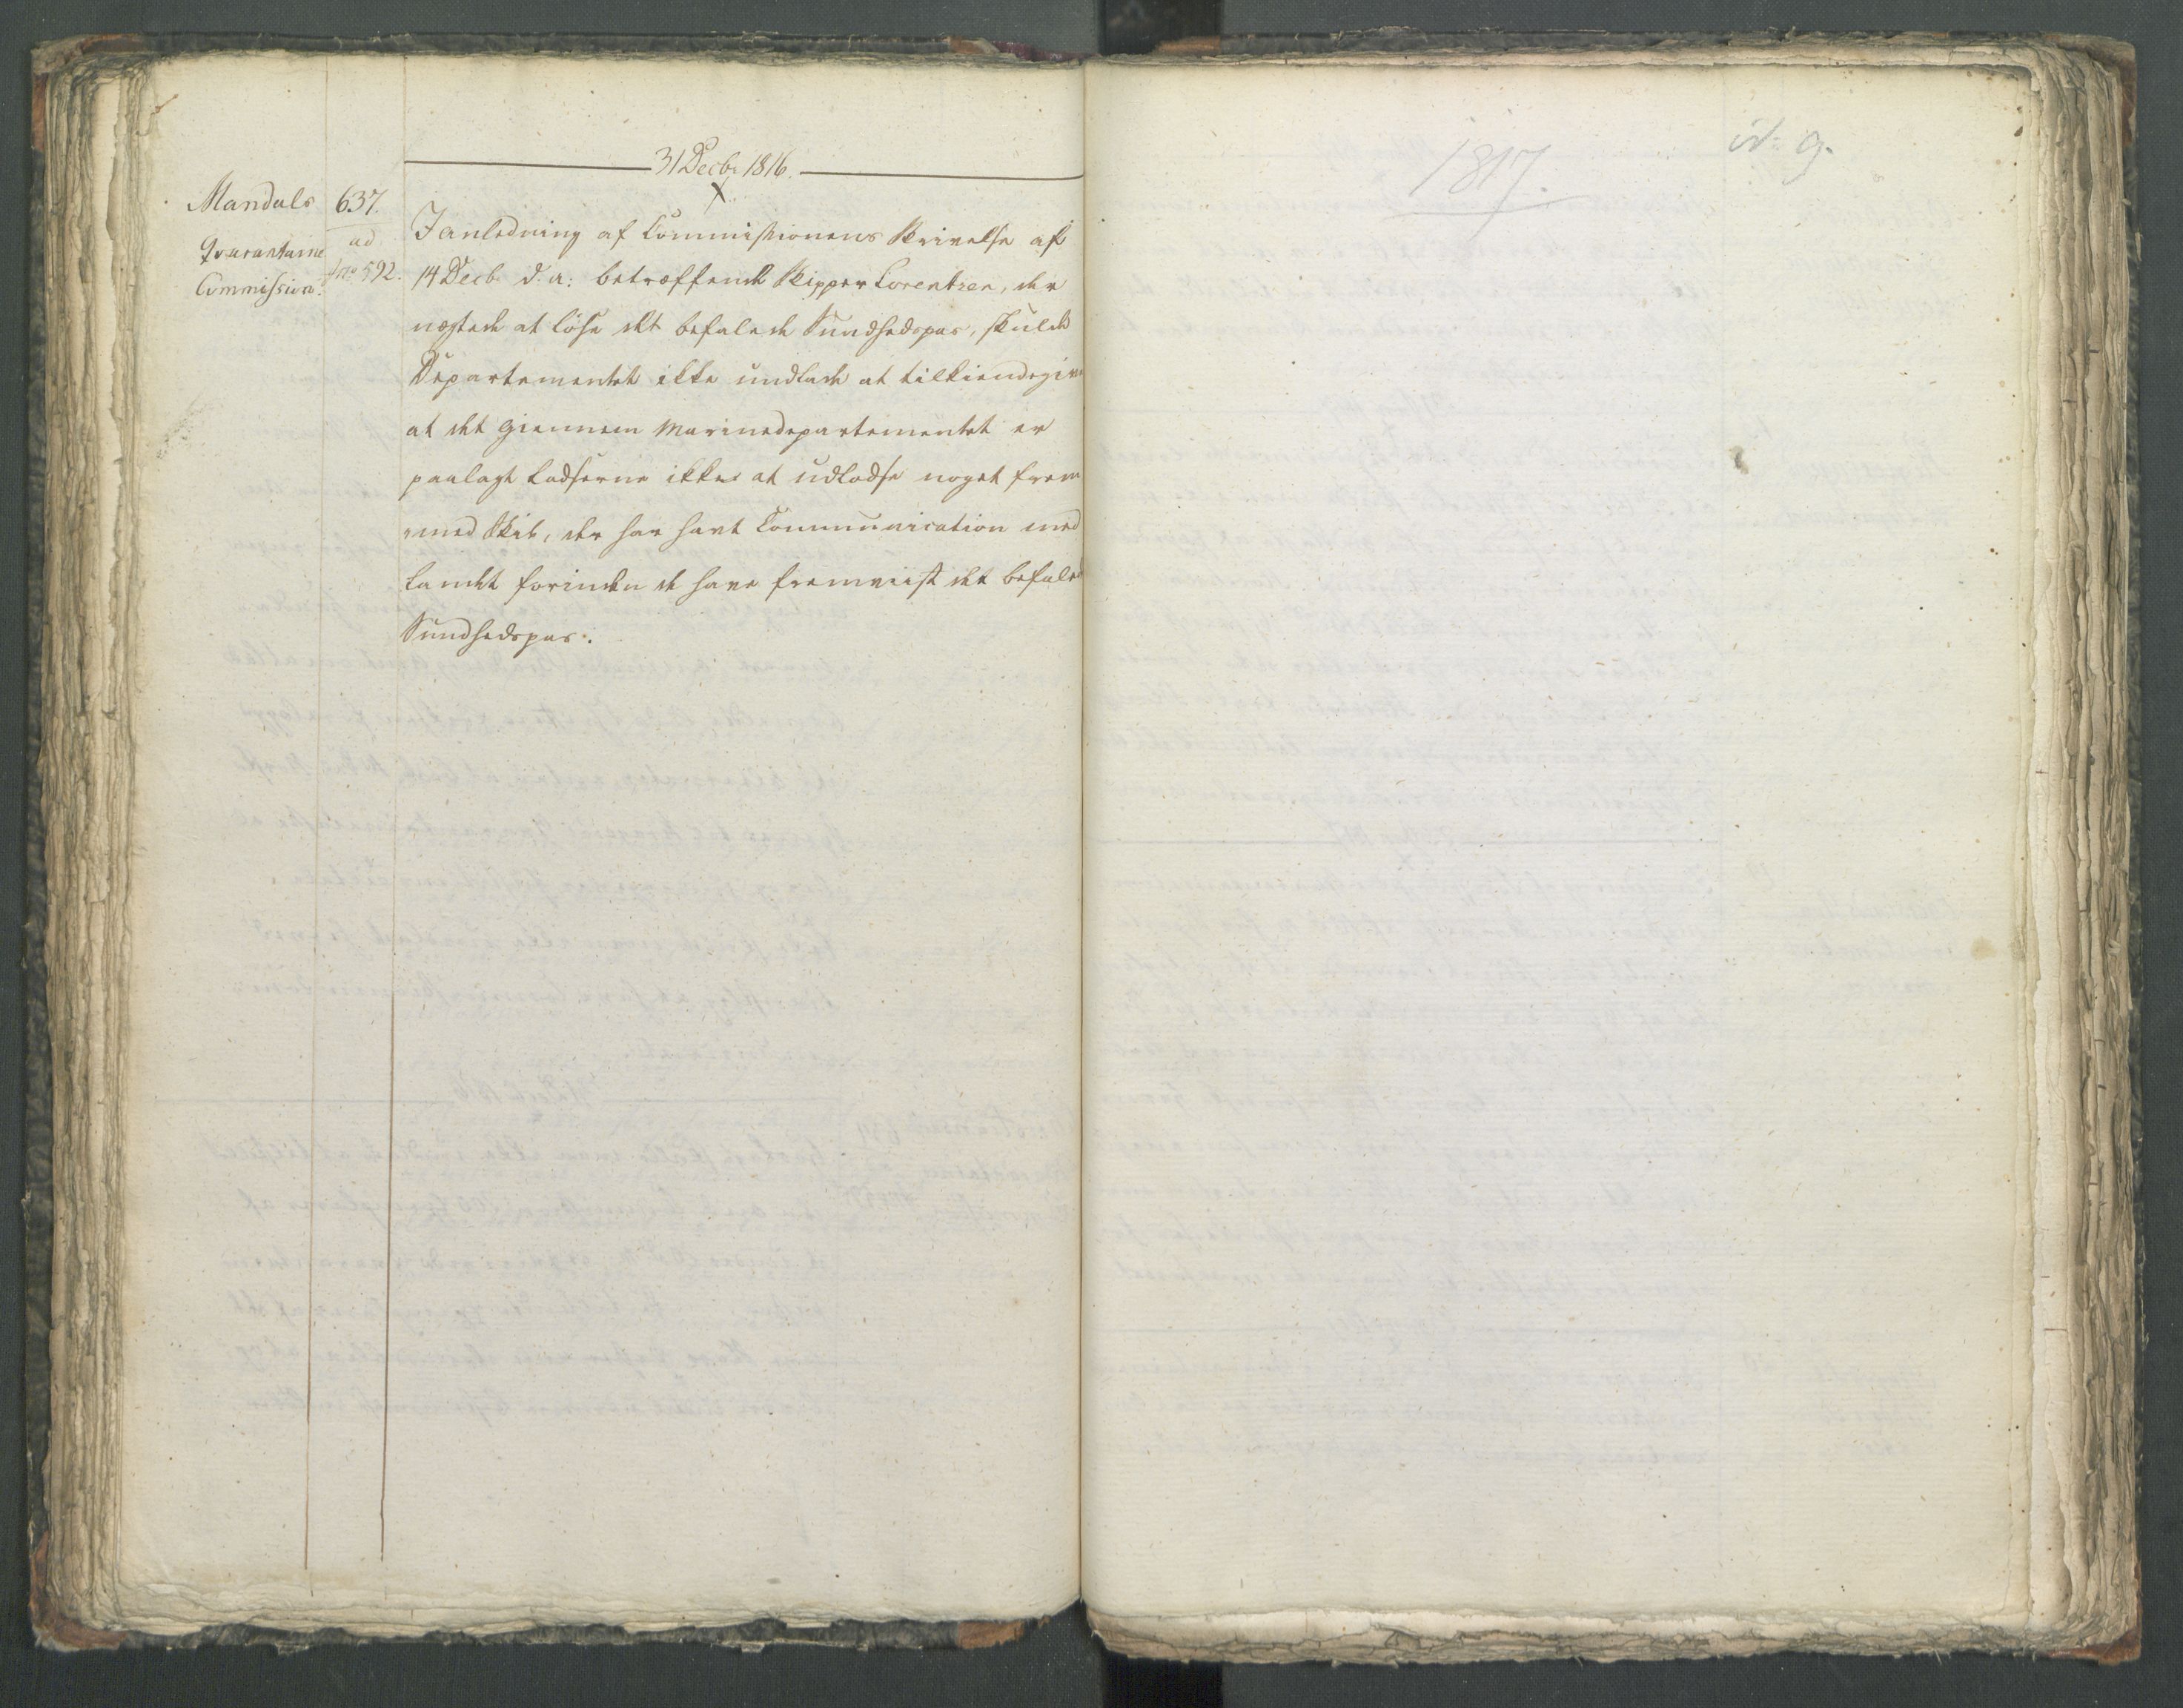 31 Decbr 1816.
Mandals
Qvarantaine
Commission.
637.
ad
No 592.
I anledning af Commissionens Skrivelse af
14 Decb. d. a: betræffende Skipper Lorentzen, der
nægtede at löse det befalede Sundhedspas, skulde
Departementet ikke undlade at tilkiendegive
at det giennem Marinedepartementet er
paalagt Lodserne ikke at udlodse noget frem
med Skib, der har havt Communication med
Landet forinden de have fremviist det befalede
Sundhedspas.
1817.